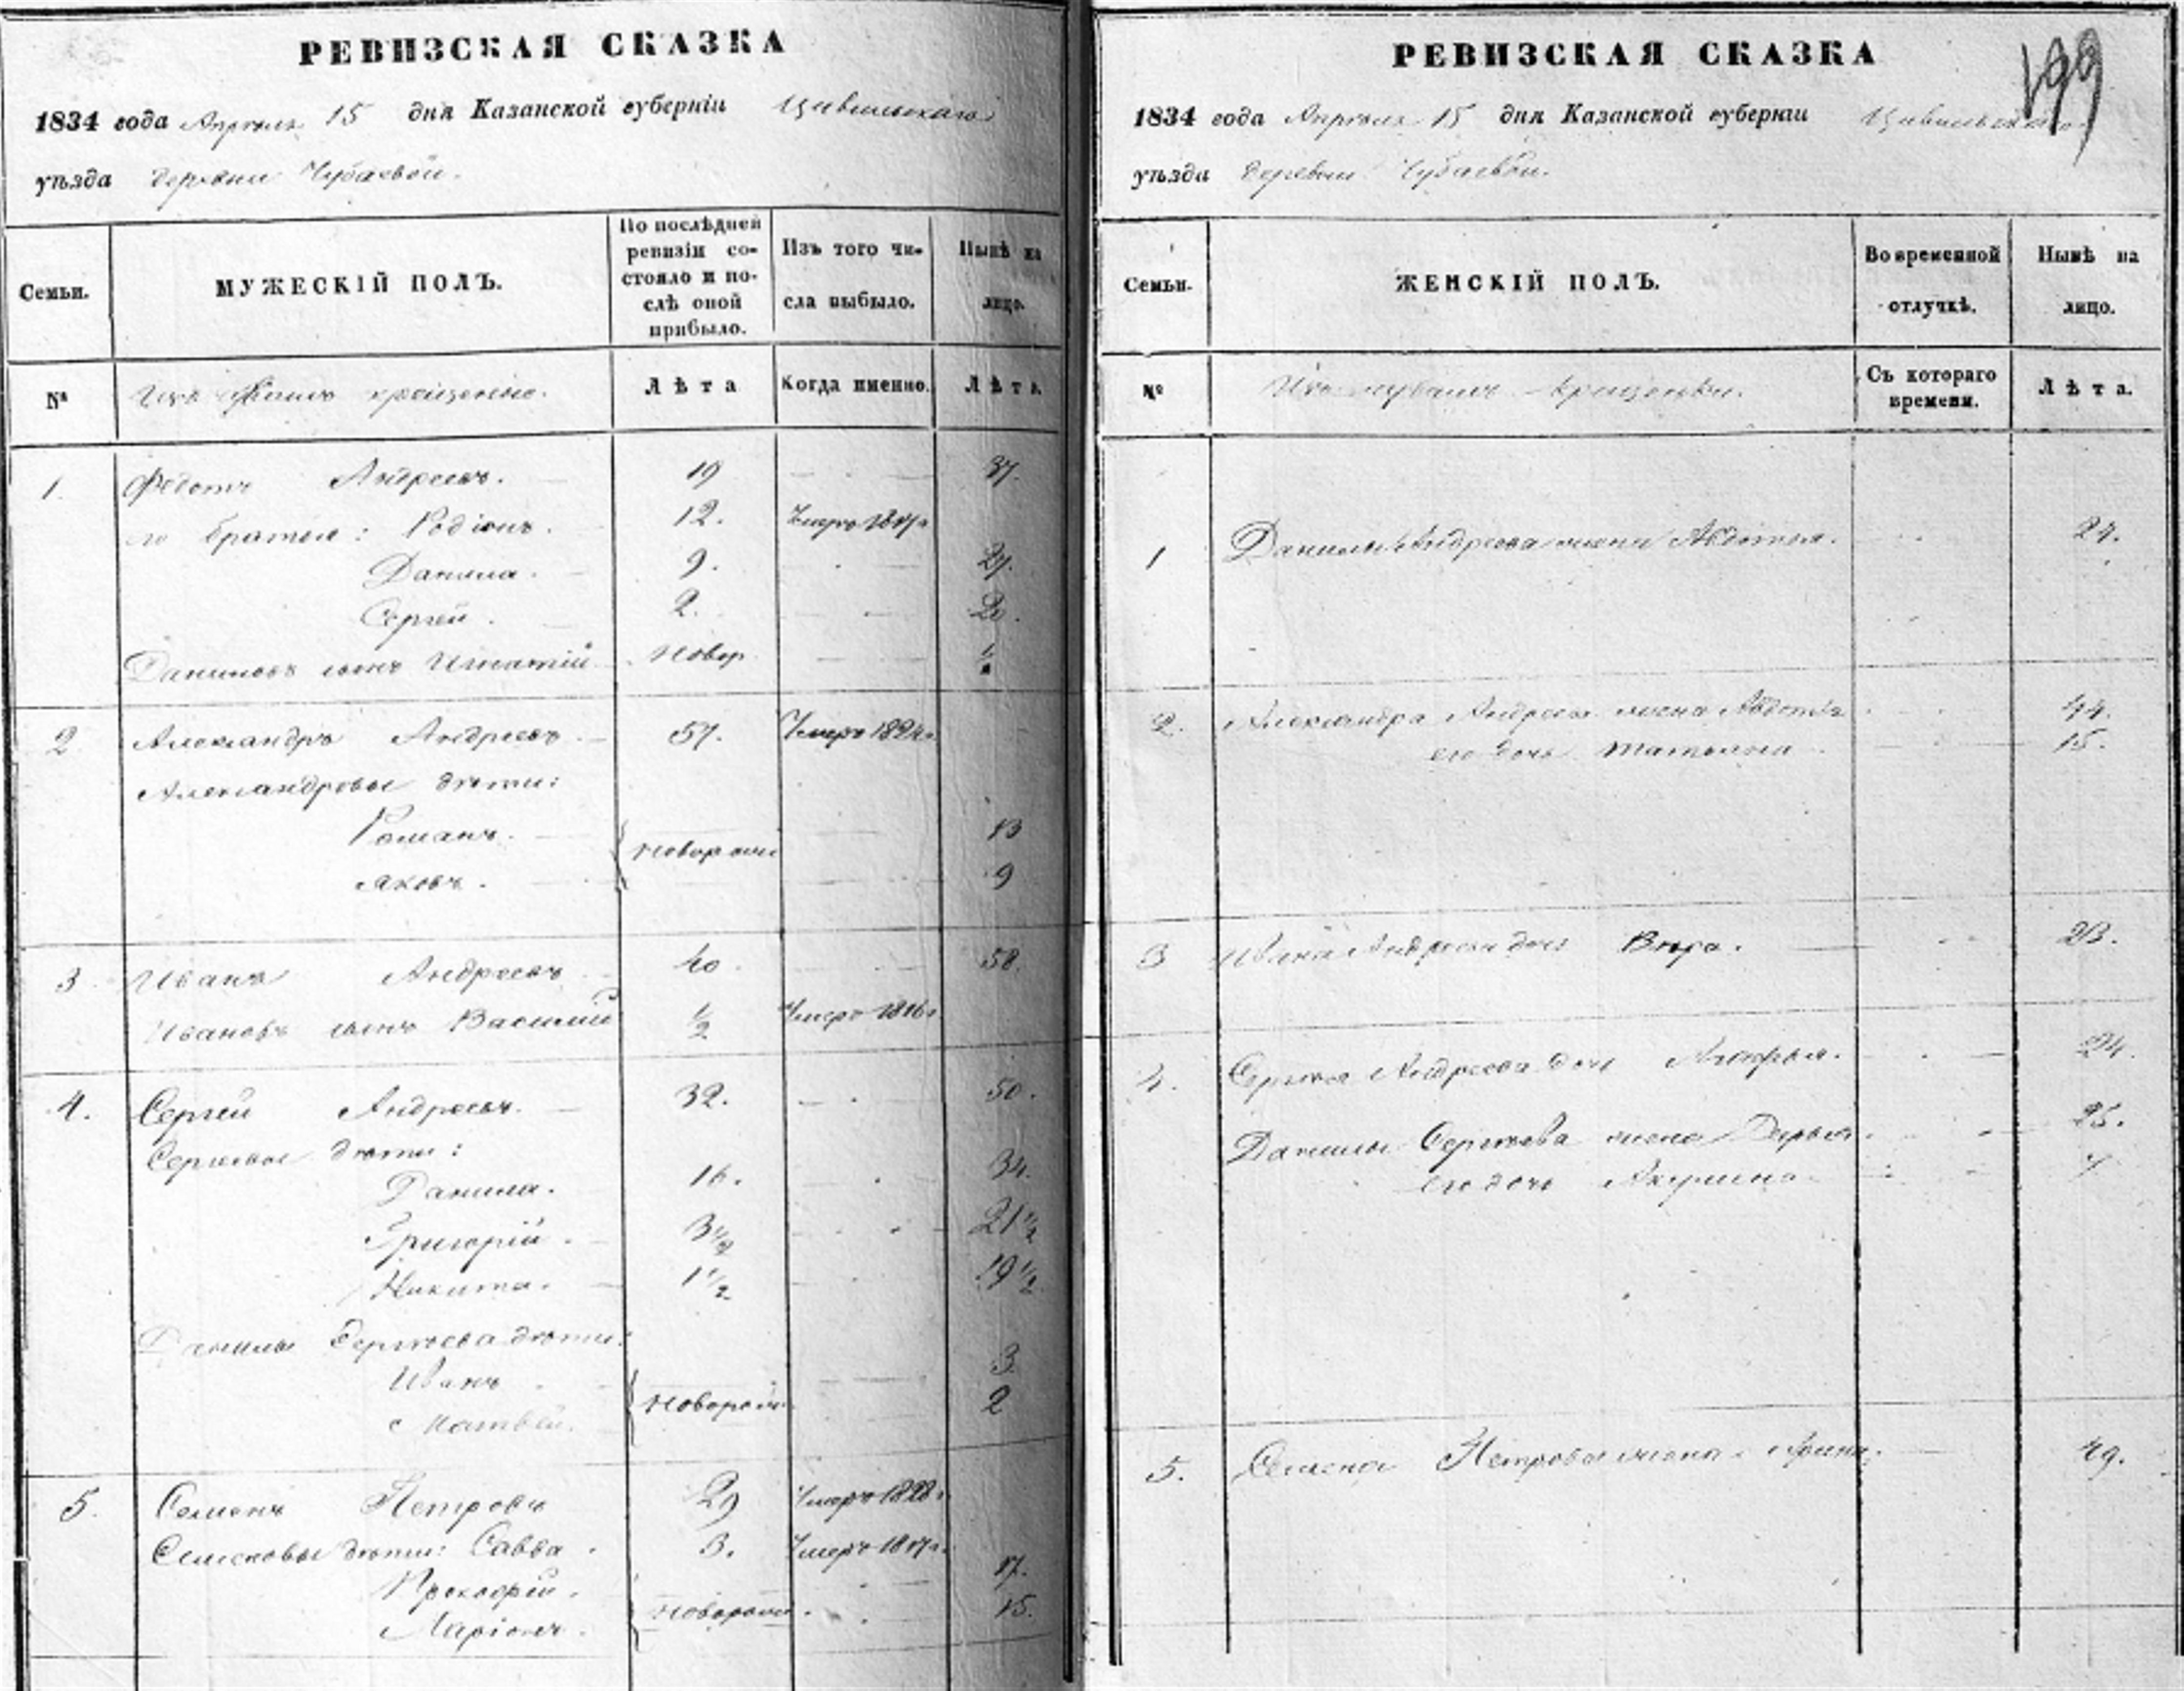 РЕВИЗСКАЯ СКАЗКА
1834 года Апреля 15 дня Казанской губерніи Цивильскаго
уѣзда деревни Чубаевой.
Семьи.
МУЖЕСКІЙ ПОЛЪ.
По послѣдней ревизіи со-
стояло и по-
слѣ оной
прибыло.
Изъ того чи-
сла выбыло.
Нынѣ на
лицо.
№
Изъ чувашъ крещеные.
Лѣта
Когда именно.
Лѣта.
1. Федотъ Андреевъ. 19 37.
его братья: Родіонъ. 12. Умеръ
Данила. 9. 27.
Сергей. 2. 20.
Даниловъ сынъ Игнатій новор.
2 Александръ Андреевъ 57. Умеръ 1824г.
Александровы дѣти:
Романъ. новорожн 13
Яковъ. 9
3 Иванъ Андреевъ 40. 58.
Ивановъ сынъ Василій 1/2 Умеръ 1816г.
4. Сергей Андреевъ. 32. 50.
Сергеевы дѣти:
Данила. 16. 34.
Григорій. 3 1/2 21 1/2
Никита. 1 1/2 19 1/2
Данилы Сергѣева дѣти:
Иванъ новорожн 3.
Матвѣй. 2
5. Семенъ Петровъ 29 Умеръ 1828г.
Семеновы дѣти: Савва. 3. Умеръ 1817г.
Прокофій. новорожн. 17.
Ларіонъ. 15.
РЕВИЗСКАЯ СКАЗКА
199
1834 года Апреля 15 дня Казанской губерніи Цивильскаго
уѣзда деревни Чубаевой.
Семьи.
ЖЕНСКІЙ ПОЛЪ.
Во временной
отлучкѣ.
Нынѣ на
лицо.
№
Изъ чувашъ крещеныхъ.
Съ котораго
времени.
Лѣта.
1 Данилы Андреева жена Авдотья. 27.
2. Александра Андреева жена Авдотья 44.
его дочь Татьяна 15.
3 Ивана Андреева дочь Вѣра. 23.
4. Сергея Андреева дочь 24.
Данилы Сергѣева жена Дарья. 25.
его дочь Акулина. 7
5. Семена Петрова жена Арина. 49.